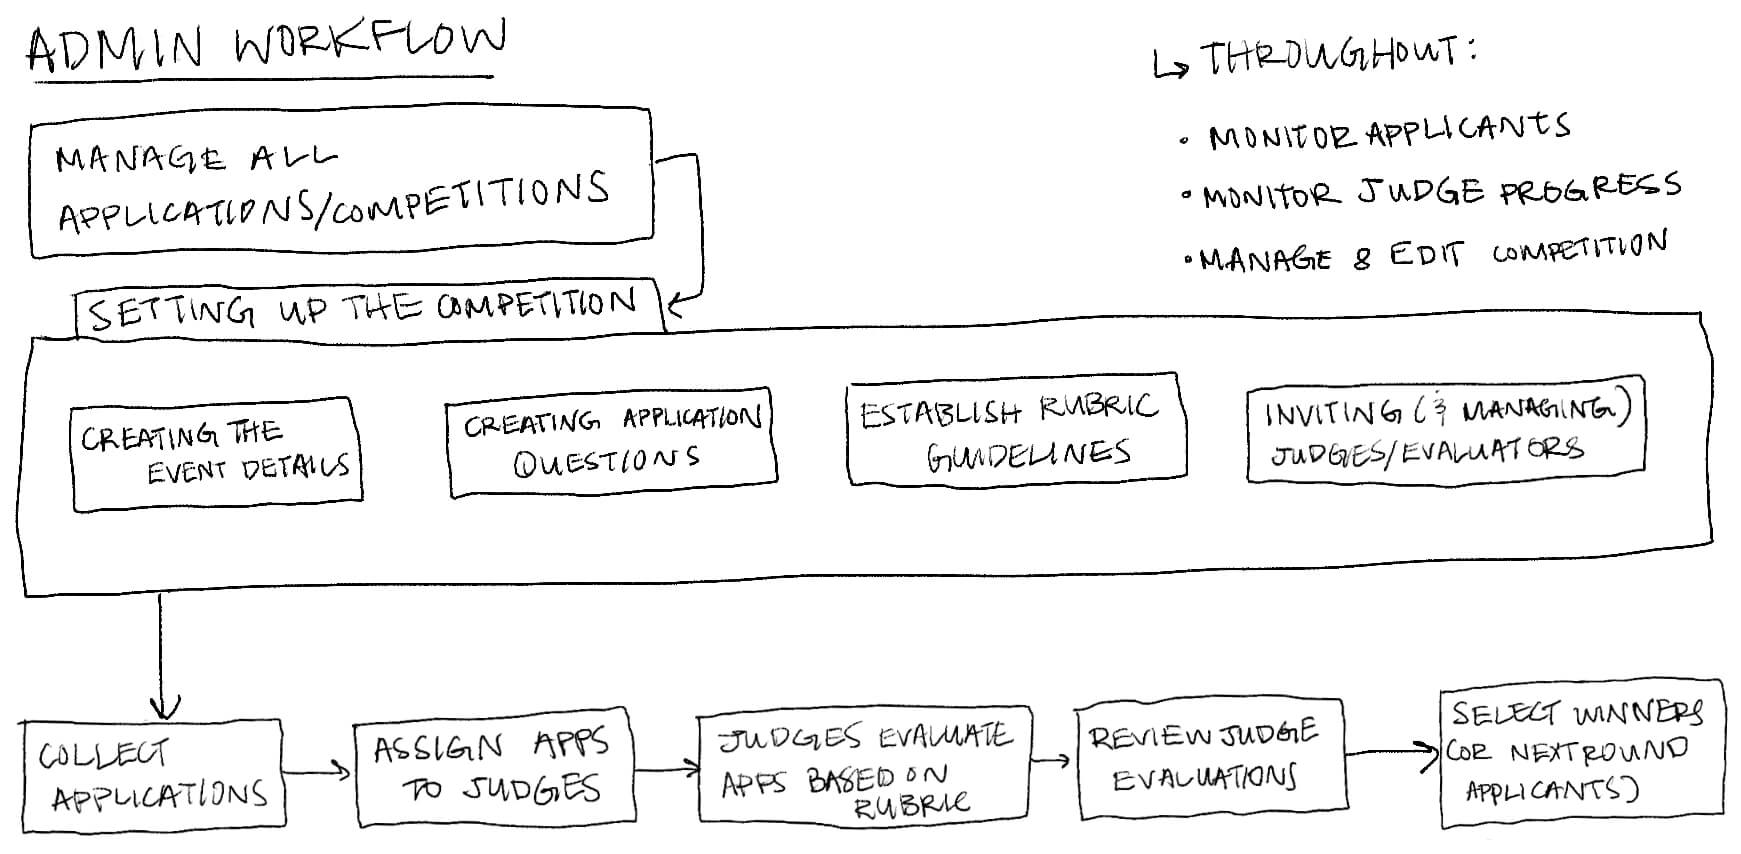 ADMIN WORKFLOW
MANAGE ALL
APPLICATIONS/COMPETITIONS
↳ THROUGHOUT:
• MONITOR APPLICANTS
• MONITOR JUDGE PROGRESS
• MANAGE & EDIT COMPETITION
SETTING UP THE COMPETITION
CREATING THE
EVENT DETAILS
CREATING APPLICATION
QUESTIONS
ESTABLISH RUBRIC
GUIDELINES
INVITING (& MANAGING)
JUDGES/EVALUATORS
COLLECT
APPLICATIONS
ASSIGN APPS
TO JUDGES
JUDGES EVALUATE
APPS BASED ON
RUBRIC
REVIEW JUDGE
EVALUATIONS
SELECT WINNERS
(OR NEXT ROUND
APPLICANTS)